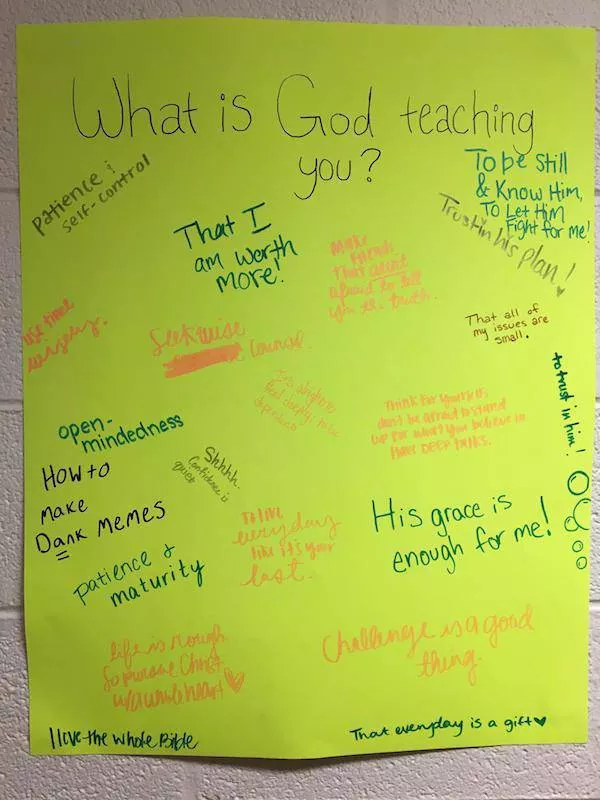 What is God teaching
you?
Patience &
self-control
To be Still
& Know Him,
To Let Him
Fight for me!
Trust in his plan!
That I
am worth
more!
Make
friends
that arent
afraid to tell
you the truth.
Use time
wisely.
Seek wise
Council.
That all of
my issues are
small.
to trust in him!
open-
mindedness
Think for yourself
dont be afraid to stand
up for what you believe in
Have DEEP TALKS.
Shhhh.
Confidence is
quiet
HOW to
Make
Dank MEMES
To live
everyday
like it's your
last.
His grace is
enough for me!
patience &
maturity
life is rough
So pursue Christ
w/a whole heart
Challenge is a good
thing.
I love the whole Bible
That everyday is a gift